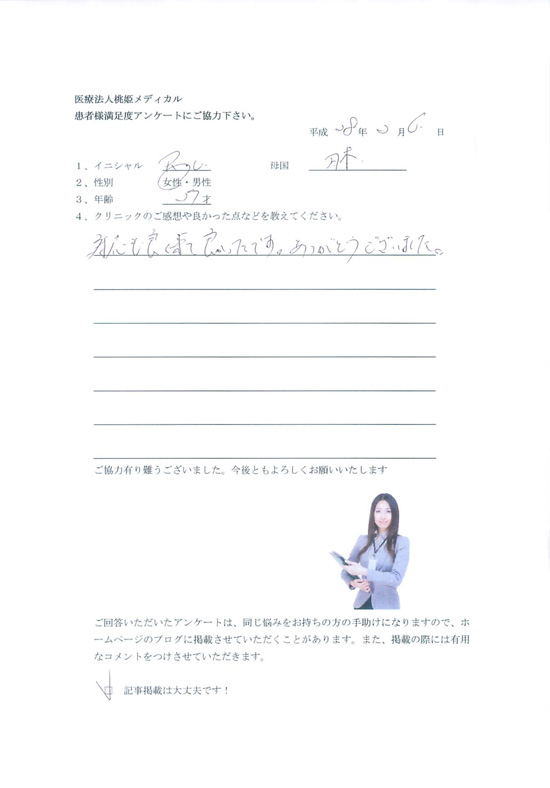 医療法人桃姫メディカル
患者様満足度アンケートにご協力下さい。
平成 28年 2月 6日
1、イニシャル 母国 日本
2、性別 女性・男性
3、年齢 57才
4、クリニックのご感想や良かった点などを教えてください。
も良く来て良かったです。ありがとうございました。
ご協力有り難うございました。今後ともよろしくお願いいたします
ご回答いただいたアンケートは、同じ悩みをお持ちの方の手助けになりますので、ホ
ームページのブログに掲載させていただくことがあります。また、掲載の際には有用
なコメントをつけさせていただきます。
□ 記事掲載は大丈夫です！